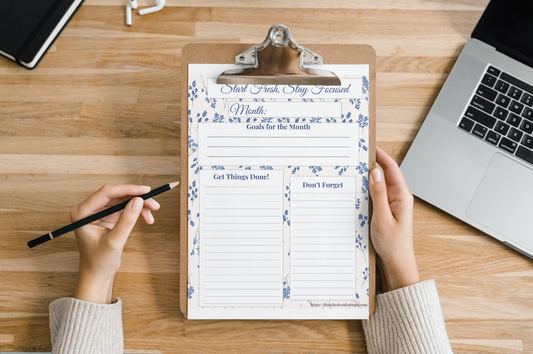 Start Fresh, Stay Focused
Month:
Goals for the Month
Get Things Done!
Don't Forget